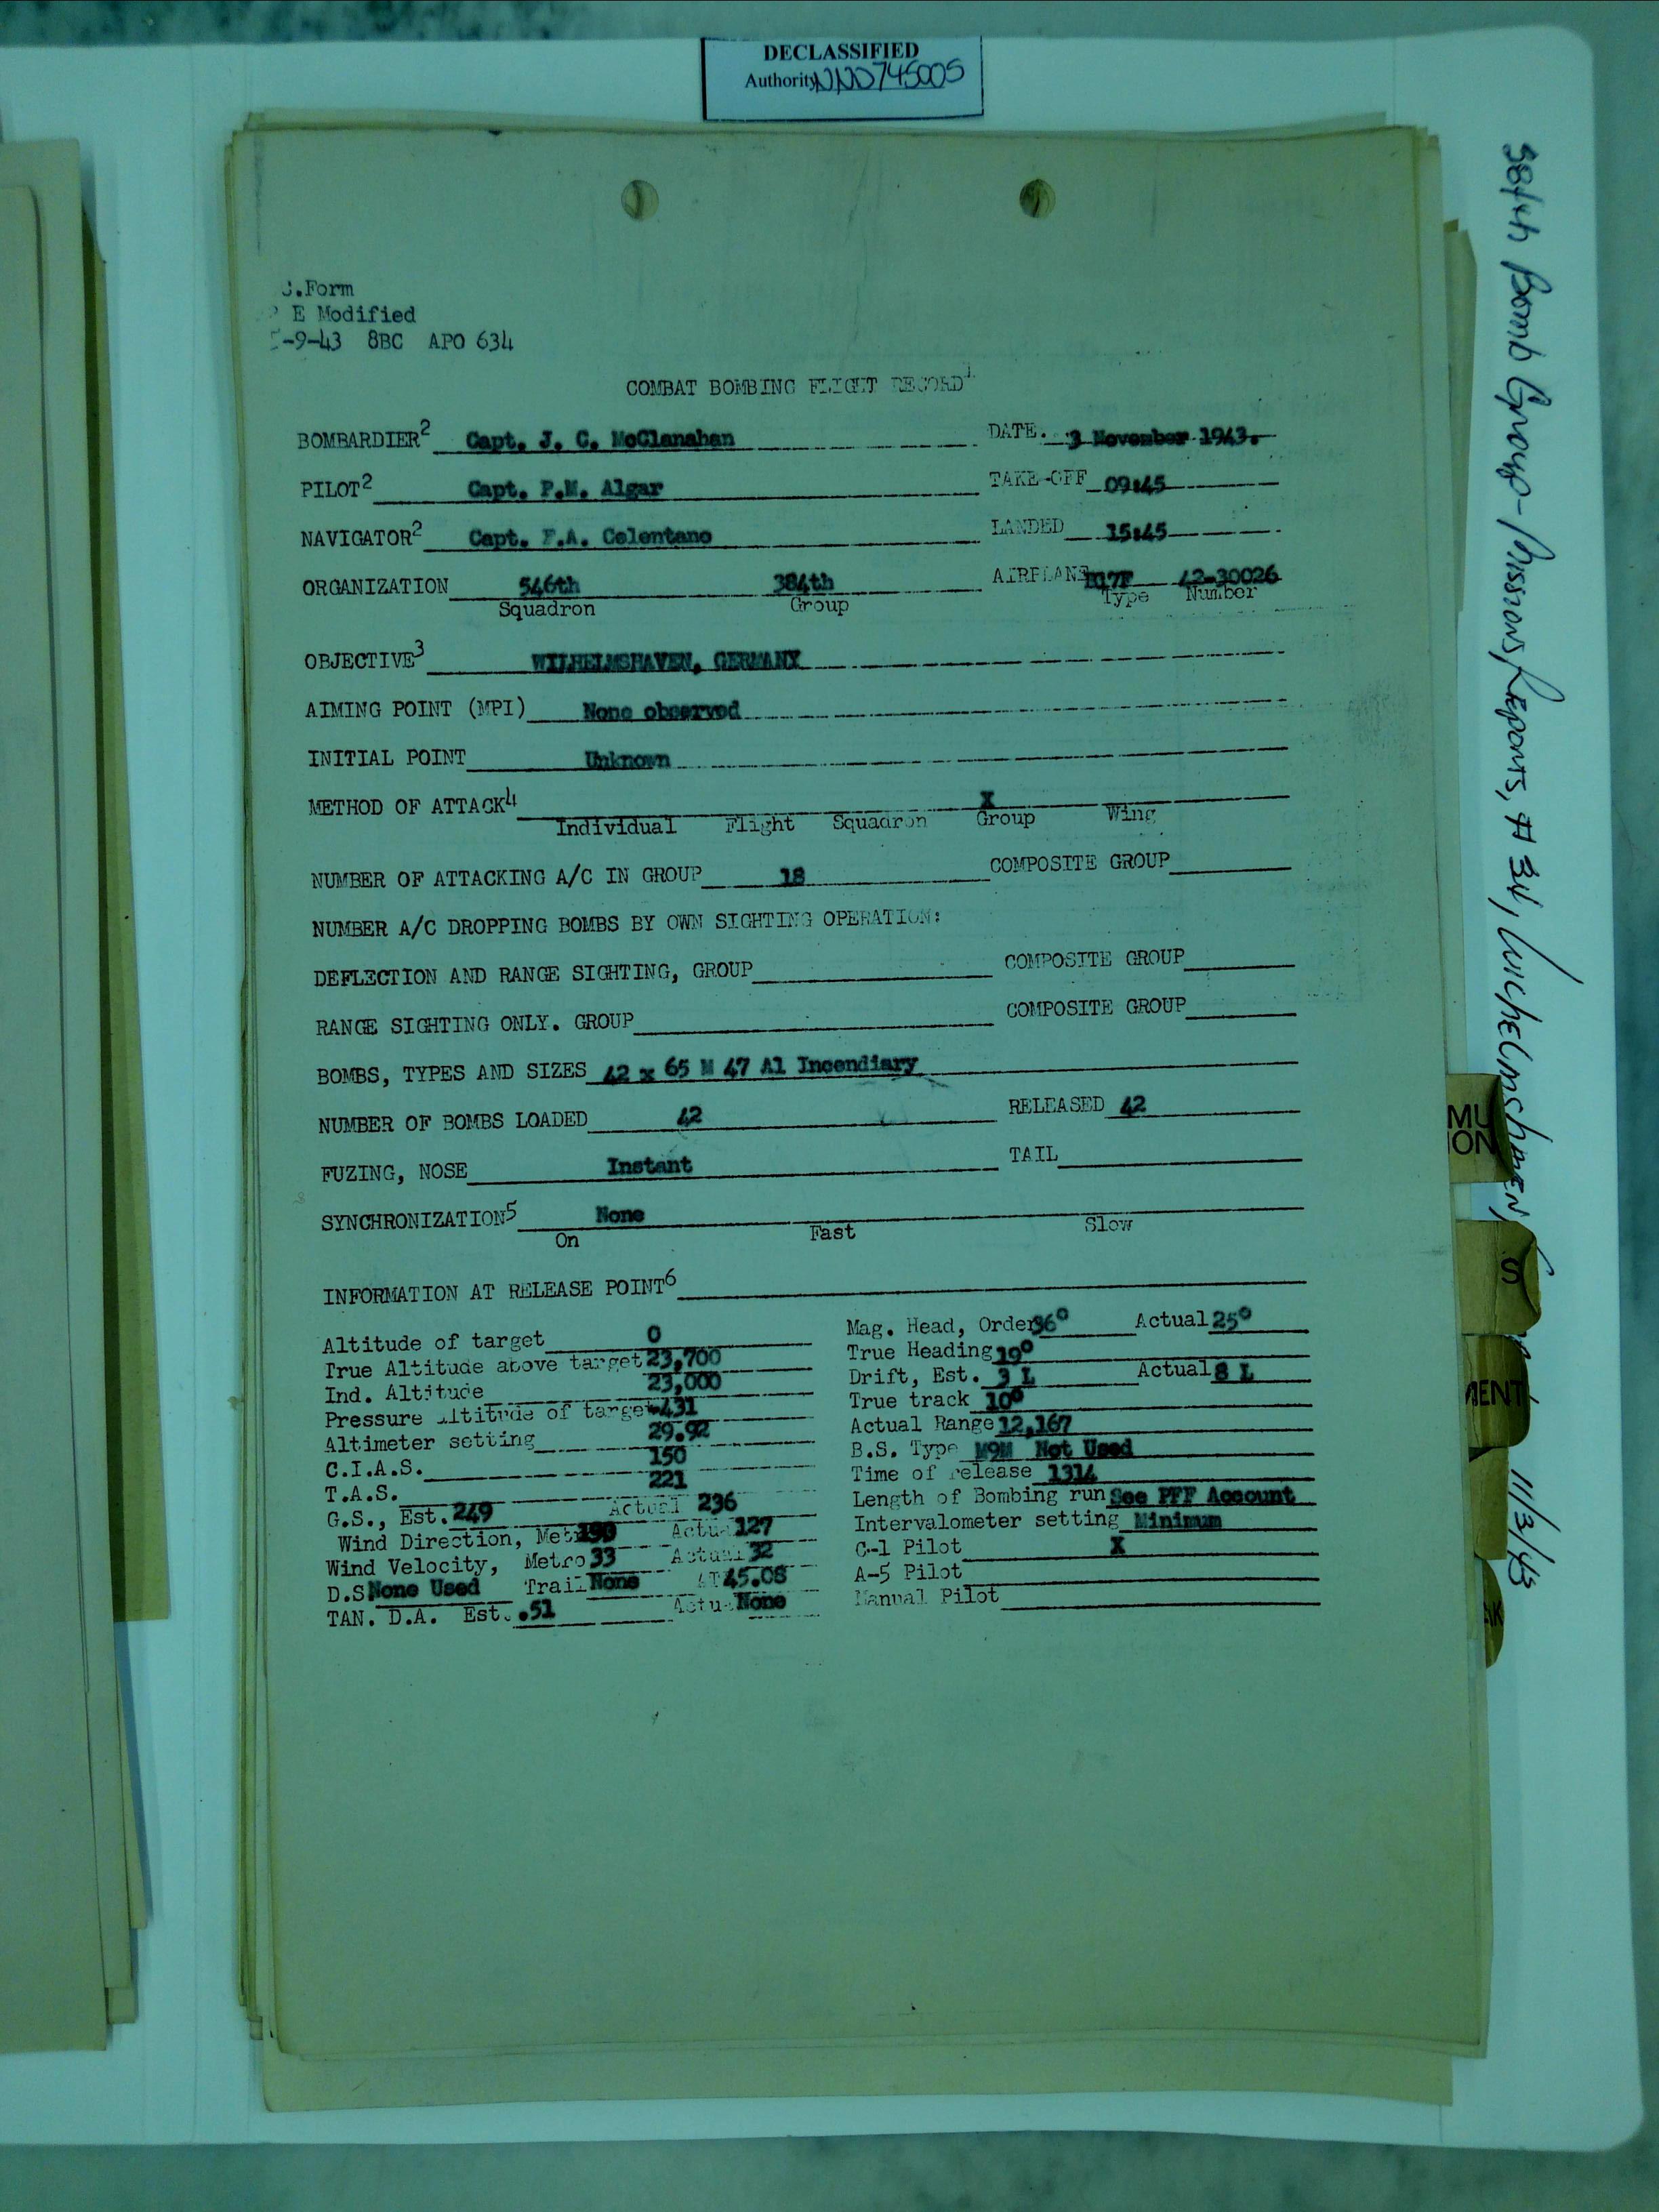 DECLASSIFIED
Authority NND745005
.Form
E Modified
-9-43 8BC APO 634
COMBAT BOMBING FLIGHT RECORD1
BOMBARDIER2 Capt. J. C. McClanahan DATE. 3 November 1943.
PILOT2 Capt. P.M. Algar TAKE-OFF 09:45
NAVIGATOR2 Capt. F.A. Celentano LANDED 15:45
ORGANIZATION 546th 384th AIRPLANE B17F 42-30026
Squadron Group Type Number
OBJECTIVE3 WILHELMSHAVEN, GERMANY
AIMING POINT (MPI) None observed
INITIAL POINT Unknown
METHOD OF ATTACK4 X
Individual Flight Squadron Group Wing
NUMBER OF ATTACKING A/C IN GROUP 18 COMPOSITE GROUP
NUMBER A/C DROPPING BOMBS BY OWN SIGHTING OPERATION:
DEFLECTION AND RANGE SIGHTING, GROUP COMPOSITE GROUP
RANGE SIGHTING ONLY. GROUP COMPOSITE GROUP
BOMBS, TYPES AND SIZES 42 x 65 M 47 Al Incendiary
NUMBER OF BOMBS LOADED 42 RELEASED 42
FUZING, NOSE Instant TAIL
SYNCHRONIZATION5 None
On Fast Slow
INFORMATION AT RELEASE POINT6
Altitude of target 0
True Altitude above target 23,700
Ind. Altitude 23,000
Pressure altitude of target -431
Altimeter setting 29.92
C.I.A.S. 150
T.A.S. 221
G.S., Est. 249 Actual 236
Wind Direction, Metro 190 Actual 127
Wind Velocity, Metro 33 Actual 32
D.S. None Used Trail None AT 45.08
TAN. D.A. Est. .51 Actual None
Mag. Head, Order 36° Actual 25°
True Heading 19°
Drift, Est. 3 L Actual 8 L
True track 10°
Actual Range 12,167
B.S. Type M9M Not Used
Time of release 1314
Length of Bombing run See PFF Account
Intervalometer setting Minimum
C-1 Pilot X
A-5 Pilot
Manual Pilot
384th Bomb Group - Mission Reports, # 34, Wilhelmshaven,
11/3/43
MU
ION
S
MENT
AK